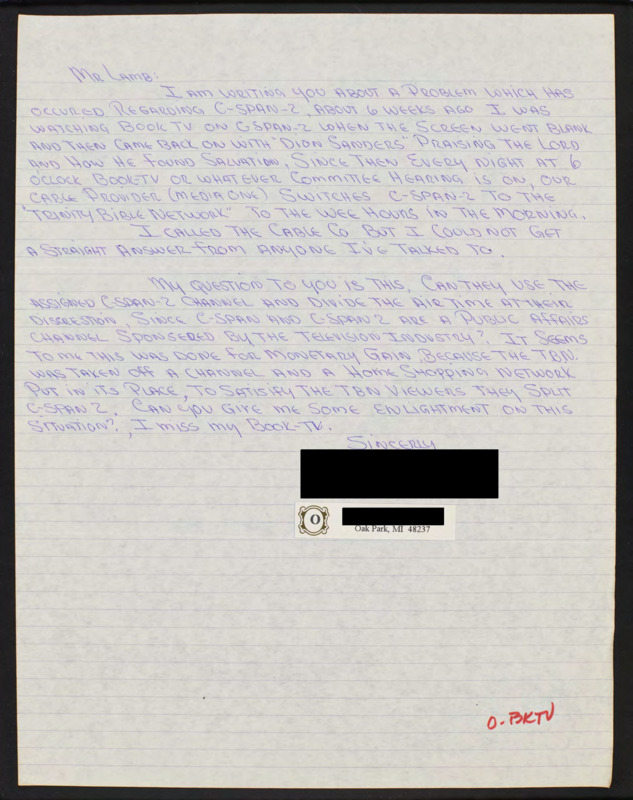 Mr Lamb:
I AM WRITING YOU ABOUT A PROBLEM WHICH HAS
OCCURED REGARDING C-SPAN-2, ABOUT 6 WEEKS AGO I WAS
WATCHING BOOK TV ON C-SPAN-2 WHEN THE SCREEN WENT BLANK
AND THEN CAME BACK ON WITH "DION SANDERS" PRAISING THE LORD
AND HOW HE FOUND SALVATION, SINCE THEN EVERY NIGHT AT 6
O'CLOCK BOOK-TV OR WHATEVER COMMITTEE HEARING IS ON, OUR
CABLE PROVIDER (MEDIA ONE) SWITCHES C-SPAN-2 TO THE
"TRINITY BIBLE NETWORK" TO THE WEE HOURS IN THE MORNING.
I CALLED THE CABLE CO. BUT I COULD NOT GET
A STRAIGHT ANSWER FROM ANYONE I'VE TALKED TO.
MY QUESTION TO YOU IS THIS, CAN THEY USE THE
ASSIGNED C-SPAN-2 CHANNEL AND DIVIDE THE AIR TIME AT THEIR
DISCRETION, SINCE C-SPAN AND C-SPAN-2 ARE A PUBLIC AFFAIRS
CHANNEL SPONSERED BY THE TELEVISION INDUSTRY?. IT SEEMS
TO ME THIS WAS DONE FOR MONETARY GAIN BECAUSE THE TBN.
WAS TAKEN OFF A CHANNEL AND A HOME SHOPPING NETWORK
PUT IN ITS PLACE, TO SATISIFY THE TBN VIEWERS THEY SPLIT
C-SPAN 2, CAN YOU GIVE ME SOME ENLIGHTMENT ON THIS
SITUATION?, I MISS MY BOOK-TV.
SINCERLY
O
Oak Park, MI 48237
O-BKTV